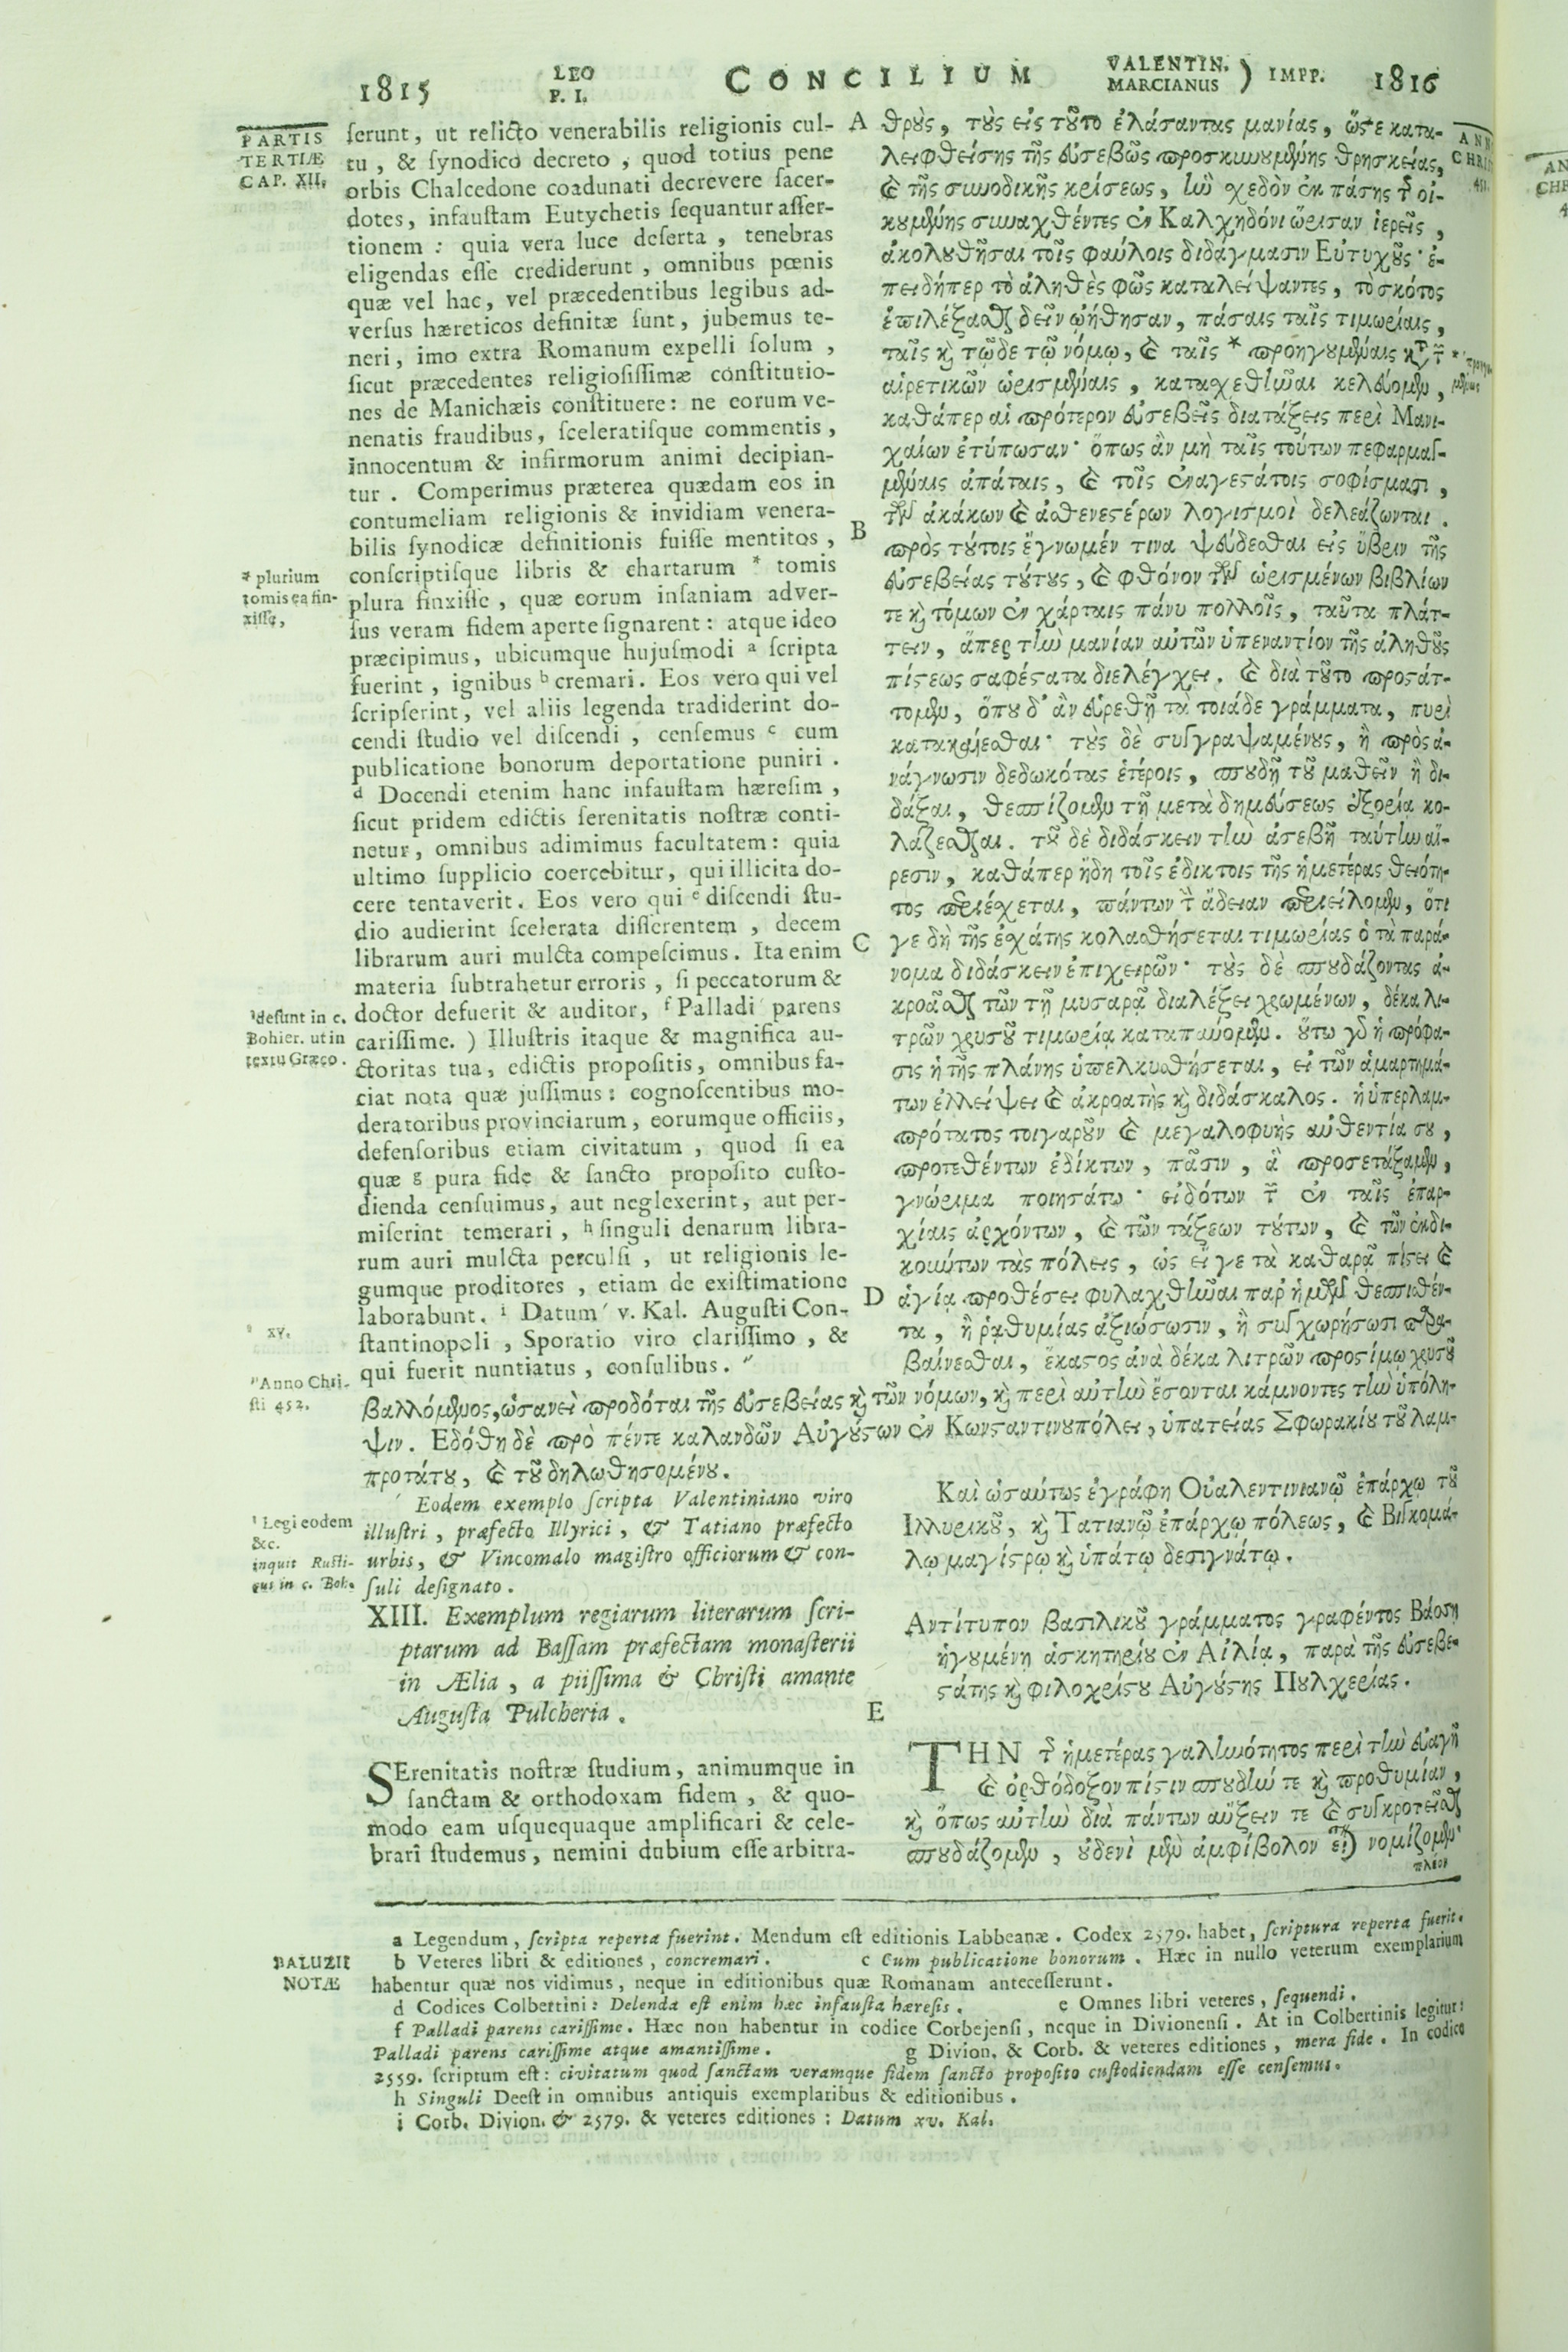 1815 LEO P. I. CONCILIUM VALENTIN. MARCIANUS ) IMPP. 1816
PARTIS
TERTIÆ
CAP. XII.
ſerunt, ut relicto venerabilis religionis cul-
tu, & ſynodico decreto, quod totius pene
orbis Chalcedone coadunati decrevere ſacer-
dotes, infauſtam Eutychetis ſequantur aſſer-
tionem: quia vera luce deſerta, tenebras
eligendas eſſe crediderunt, omnibus pœnis
quæ vel hac, vel præcedentibus legibus ad-
verſus hæreticos definitæ ſunt, jubemus te-
neri, imo extra Romanum expelli ſolum,
ſicut præcedentes religioſiſſimæ conſtitutio-
nes de Manichæis conſtituere: ne eorum ve-
nenatis fraudibus, ſceleratiſque commentis,
innocentum & infirmorum animi decipian-
tur. Comperimus præterea quædam eos in
contumeliam religionis & invidiam venera-
bilis ſynodicæ definitionis fuiſſe mentitos,
conſcriptiſque libris & chartarum * tomis
plura finxiſſe, quæ eorum inſaniam adver-
ſus veram fidem aperte ſignarent: atque ideo
præcipimus, ubicumque hujuſmodi a ſcripta
fuerint, ignibus b cremari. Eos vero qui vel
ſcripſerint, vel aliis legenda tradiderint do-
cendi ſtudio vel diſcendi, cenſemus c cum
publicatione bonorum deportatione puniri.
d Docendi etenim hanc infauſtam hæreſim,
ſicut pridem edictis ſerenitatis noſtræ conti-
netur, omnibus adimimus facultatem: quia
ultimo ſupplicio coercebitur, qui illicita do-
cere tentaverit. Eos vero qui e diſcendi ſtu-
dio audierint ſcelerata diſſerentem, decem
librarum auri mulcta compeſcimus. Ita enim
materia ſubtrahetur erroris, ſi peccatorum &
doctor defuerit & auditor, f Palladi parens
cariſſime. ) Illuſtris itaque & magnifica au-
ctoritas tua, edictis propoſitis, omnibus fa-
ciat nota quæ juſſimus: cognoſcentibus mo-
deratoribus provinciarum, eorumque officiis,
defenſoribus etiam civitatum, quod ſi ea
quæ g pura fide & ſancto propoſito cuſto-
dienda cenſuimus, aut neglexerint, aut per-
miſerint temerari, h ſinguli denarum libra-
rum auri mulcta perculſi, ut religionis le-
gumque proditores, etiam de exiſtimatione
laborabunt. i Datum v. Kal. Auguſti Con-
ſtantinopoli, Sporatio viro clariſſimo, &
qui fuerit nuntiatus, conſulibus. "
* plurium
tomis ea fin-
xiſſe,
deſunt in c.
Bohier. ut in
textu Græco.
xv.
" Anno Chri-
ſti 452.
A
B
C
D
E
θροὺς, τοὺς εἰς τοῦτο ἐλάσαντας μανίας, ὥστε κατα-
λειφθείσης τῆς εὐσεβῶς προσκυνουμένης θρησκείας,
καὶ τῆς συνοδικῆς κρίσεως, ἣν σχεδὸν ἐκ πάσης τῆς οἰ-
κουμένης συναχθέντες ἐν Καλχηδόνι ὥρισαν ἱερεῖς,
ἀκολουθῆσαι τοῖς φαύλοις διδάγμασιν Εὐτυχοῦς· ἐ-
πειδήπερ τὸ ἀληθὲς φῶς καταλείψαντες, τὸ σκότος
ἐπιλέξασθαι δεῖν ᾠήθησαν, πάσαις ταῖς τιμωρίαις,
ταῖς καὶ τῷδε τῷ νόμῳ, καὶ ταῖς * προηγουμέναις κατὰ τῶν
αἱρετικῶν ὡρισμέναις, κατασχεθῆναι κελεύομεν,
καθάπερ αἱ πρότερον εὐσεβεῖς διατάξεις περὶ Μανι-
χαίων ἐτύπωσαν· ὅπως ἂν μὴ ταῖς τούτων πεφαρμαγ-
μέναις ἀπάταις, καὶ τοῖς ἐναγεστάτοις σοφίσμασι,
τῶν ἀκάκων καὶ ἀσθενεστέρων λογισμοὶ δελεάζωνται.
πρὸς τούτοις ἔγνωμέν τινα ψεύδεσθαι εἰς ὕβριν τῆς
εὐσεβείας τούτους, καὶ φθόνον τῶν ὡρισμένων βιβλίων
τε καὶ τόμων ἐν χάρταις πάνυ πολλοῖς, ταῦτα πλάτ-
τειν, ἅπερ τὴν μανίαν αὐτῶν ὑπεναντίον τῆς ἀληθοῦς
πίστεως σαφέστατα διελέγχει. καὶ διὰ τοῦτο προστάτ-
τομεν, ὅπου δ᾽ ἂν εὑρεθῇ τὰ τοιάδε γράμματα, πυρὶ
κατακαίεσθαι· τοὺς δὲ συγγραψαμένους, ἢ πρὸς ἀ-
νάγνωσιν δεδωκότας ἑτέροις, σπουδῇ τοῦ μαθεῖν ἢ δι-
δάξαι, θεσπίζομεν τῇ μετὰ δημεύσεως ἐξορίᾳ κο-
λάζεσθαι. τοῦ δὲ διδάσκειν τὴν ἀσεβῆ ταύτην αἵ-
ρεσιν, καθάπερ ἤδη τοῖς ἐδίκτοις τῆς ἡμετέρας θειότη-
τος περιέχεται, πάντων τὴν ἄδειαν περιείλομεν, ὅτι
γε δὴ τῆς ἐσχάτης κολασθήσεται τιμωρίας ὁ τὰ παρά-
νομα διδάσκειν ἐπιχειρῶν· τοὺς δὲ σπουδάζοντας ἀ-
κροᾶσθαι τῶν τῇ μυσαρᾷ διαλέξει χρωμένων, δέκα λι-
τρῶν χρυσοῦ τιμωρίᾳ καταπαύομεν. οὕτω γὰρ ἡ πρόφα-
σις ἡ τῆς πλάνης ὑπελκυσθήσεται, εἰ τῶν ἁμαρτημά-
των ἐλλείψει καὶ ἀκροατὴς καὶ διδάσκαλος. ἡ ὑπερλαμ-
πρότατος τοιγαροῦν καὶ μεγαλοφυὴς αὐθεντία σου,
προτεθέντων ἐδίκτων, πᾶσιν, ἃ προσετάξαμεν,
γνώριμα ποιησάτω· εἰδότων τῶν ἐν ταῖς ἐπαρ-
χίαις ἀρχόντων, καὶ τῶν τάξεων τούτων, καὶ τῶν ἐκδι-
κούντων τὰς πόλεις, ὡς εἴ γε τὰ καθαρᾷ πίστει καὶ
ἁγίᾳ προθέσει φυλαχθῆναι παρ᾽ ἡμῶν θεσπισθέν-
τα, ἢ ῥᾳθυμίας ἀξιώσωσιν, ἢ συγχωρήσωσι παρα-
βαίνεσθαι, ἕκαστος ἀνὰ δέκα λιτρῶν προστίμῳ χρυσοῦ
βαλλόμενος, ὡσανεὶ προδόται τῆς εὐσεβείας καὶ τῶν νόμων, καὶ περὶ αὐτὴν ἔσονται κάμνοντες τὴν ὑπόλη-
ψιν. Εδόθη δὲ πρὸ πέντε καλανδῶν Αὐγούστων ἐν Κωνσταντινουπόλει, ὑπατείας Σφωρακίου τοῦ λαμ-
προτάτου, καὶ τοῦ δηλωθησομένου.
Eodem exemplo ſcripta Valentiniano viro
illuſtri, præfecto Illyrici, & Tatiano præfecto
urbis, & Vincomalo magiſtro officiorum & con-
ſuli deſignato.
Legi eodem
&c.
inquit Ruſti-
cus in c. Boh.
Καὶ ὡσαύτως ἐγράφη Οὐαλεντινιανῷ ἐπάρχῳ τοῦ
Ιλλυρικοῦ, καὶ Τατιανῷ ἐπάρχῳ πόλεως, καὶ Βιγκομά-
λῳ μαγίστρῳ καὶ ὑπάτῳ δεσιγνάτῳ.
XIII. Exemplum regiarum literarum ſcri-
ptarum ad Baſſam præfectam monaſterii
in Ælia, a piiſſima & Chriſti amante
Auguſta Pulcheria.
Αντίτυπον βασιλικοῦ γράμματος γραφέντος Βάσσῃ
ἡγουμένῃ ἀσκητηρίου ἐν Αἰλίᾳ, παρὰ τῆς εὐσεβε-
στάτης καὶ φιλοχρίστου Αὐγούστης Πουλχερίας.
SErenitatis noſtræ ſtudium, animumque in
ſanctam & orthodoxam fidem, & quo-
modo eam uſquequaque amplificari & cele-
brari ſtudemus, nemini dubium eſſe arbitra-
ΤΗΝ τῆς ἡμετέρας γαληνότητος περὶ τὴν εὐαγῆ
καὶ ὀρθόδοξον πίστιν σπουδήν τε καὶ προθυμίαν,
καὶ ὅπως αὐτὴν διὰ πάντων αὔξειν τε καὶ συγκροτεῖσθαι
σπουδάζομεν, οὐδενὶ μὲν ἀμφίβολον εἶναι νομίζομεν·
BALUZII
NOTÆ
a Legendum, ſcripta reperta fuerint. Mendum eſt editionis Labbeanæ. Codex 2579. habet, ſcriptura reperta fuerit.
b Veteres libri & editiones, concremari. c Cum publicatione bonorum. Hæc in nullo veterum exemplarium
habentur quæ nos vidimus, neque in editionibus quæ Romanam anteceſſerunt.
d Codices Colbertini: Delenda eſt enim hæc infauſta hæreſis. e Omnes libri veteres, ſequendi.
f Palladi parens cariſſime. Hæc non habentur in codice Corbejenſi, neque in Divionenſi. At in Colbertinis legitur:
Palladi parens cariſſime atque amantiſſime. g Divion. & Corb. & veteres editiones, mera fide. In codice
2559. ſcriptum eſt: civitatum quod ſanctam veramque fidem ſancto propoſito cuſtodiendam eſſe cenſemus.
h Singuli Deeſt in omnibus antiquis exemplaribus & editionibus.
i Corb. Divion. & 2579. & veteres editiones: Datum xv. Kal.